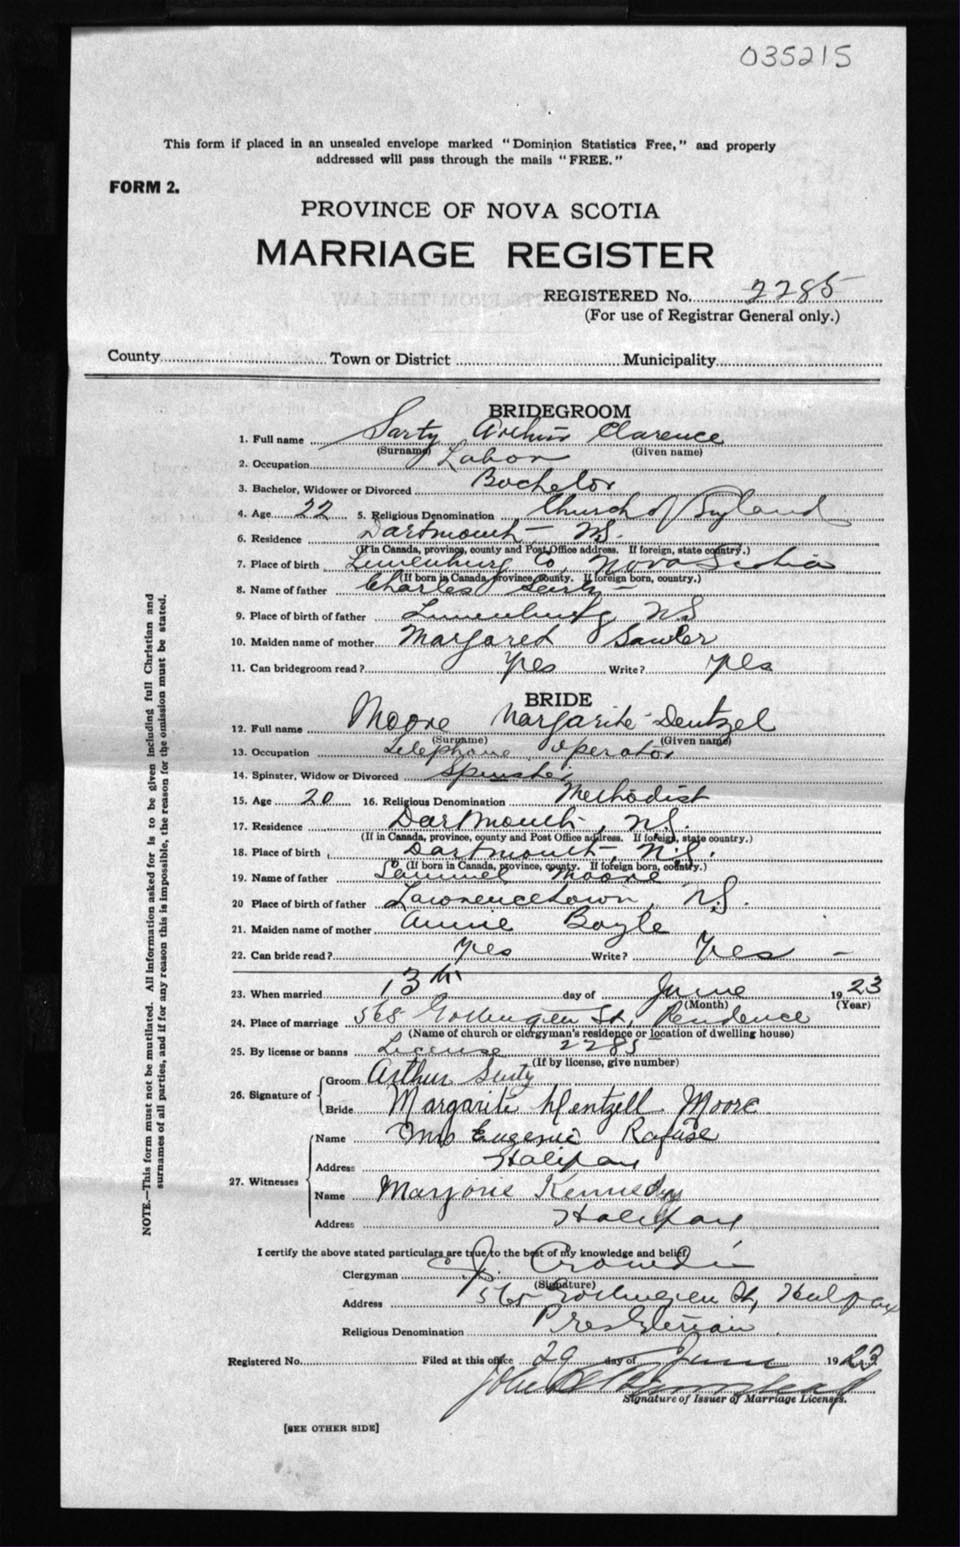 035215
This form if placed in an unsealed envelope marked "Dominion Statistics Free," and properly
addressed will pass through the mails "FREE."
FORM 2.
PROVINCE OF NOVA SCOTIA
MARRIAGE REGISTER
REGISTERED No. 2285
(For use of Registrar General only.)
County Town or District Municipality
BRIDEGROOM
1. Full name Sarty Arthur Clarence
(Surname) (Given name)
2. Occupation Labor
3. Bachelor, Widower or Divorced Bachelor
4. Age 22 5. Religious Denomination Church of England
6. Residence Dartmouth N.S.
(If in Canada, province, county and Post Office address. If foreign, state country.)
7. Place of birth Lunenburg Co, Nova Scotia
(If born in Canada, province, county. If foreign born, country.)
8. Name of father Charles Sarty
9. Place of birth of father Lunenburg NS
10. Maiden name of mother Margaret Sawler
11. Can bridegroom read? Yes Write? Yes
BRIDE
12. Full name Moore Margarite Dentzel
(Surname) (Given name)
13. Occupation Telephone operator
14. Spinster, Widow or Divorced Spinster
15. Age 20 16. Religious Denomination Methodist
17. Residence Dartmouth, N.S.
(If in Canada, province, county and Post Office address. If foreign, state country.)
18. Place of birth Dartmouth N.S.
(If born in Canada, province, county. If foreign born, country.)
19. Name of father Samuel Moore
20 Place of birth of father Lawrencetown, N.S.
21. Maiden name of mother Annie Boyle
22. Can bride read? Yes Write? Yes -
23. When married 13th day of June 1923
(Month) (Year)
24. Place of marriage 568 Gottingen St, Residence
(Name of church or clergyman's residence or location of dwelling house)
25. By license or banns License 2285
(If by license, give number)
26. Signature of Groom Arthur Sarty
Bride Margarite Dentzell Moore
27. Witnesses Name Mrs Eugenie Rafuse
Address Halifax
Name Marjorie Kennedy
Address Halifax
I certify the above stated particulars are true to the best of my knowledge and belief,
Clergyman
(Signature)
Address 568 Gottingen St, Halifax
Religious Denomination Presbyterian
Registered No. Filed at this office 29 day of June 1923
John
Signature of Issuer of Marriage Licenses.
[SEE OTHER SIDE]
NOTE.—This form must not be mutilated. All information asked for is to be given including full Christian and
surnames of all parties, and if for any reason this is impossible, the reason for the omission must be stated.